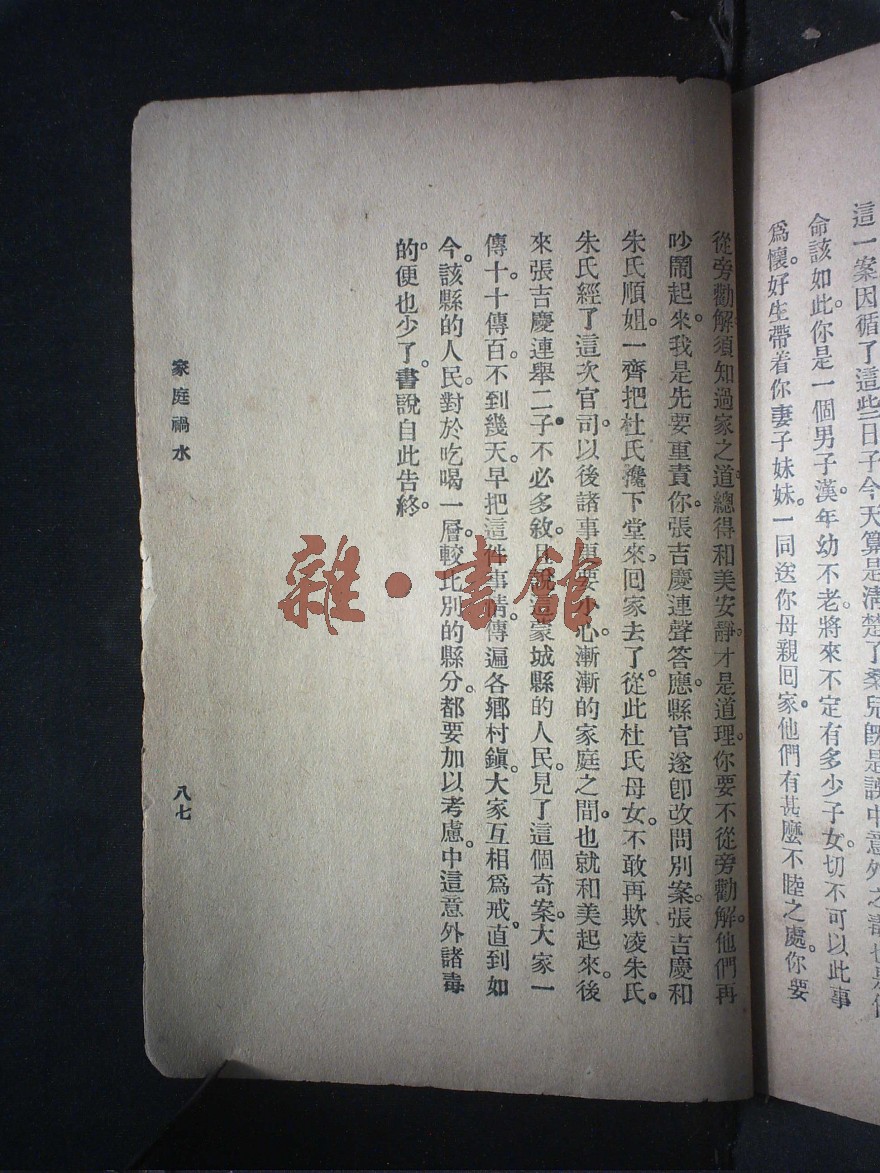 這一案因循了這些日子今天算是淸楚了桑兒旣是誤中意外之毒也是
命該如此。你是一個男子漢。年幼不老。將來不定有多少子女。切不可以此事
爲懷。好生帶着你妻子妹妹。一同送你母親回家。他們有甚麼不睦之處。你要
從旁勸解。須知過家之道。總得和美安靜。才是道理。你要不從旁勸解。他們再
吵鬧起來。我是先要重責你。張吉慶連聲答應。縣官遂卽改問別案。張吉慶和
朱氏順姐。一齊把杜氏攙下堂來。回家去了。從此杜氏母女。不敢再欺凌朱氏。
朱氏經了這次官司。以後諸事事要小心。漸漸的家庭之間。也就和美起來。後
來張吉慶連舉二子。不必多敘。且說這蒙城縣的人民。見了這個奇案。大家一
傳十。十傳百。不到幾天。早把這件事情。傳遍各鄕村鎭。大家互相爲戒。直到如
今。該縣的人民。對於吃喝一層。較比別的縣分。都要加以考慮。中這意外諸毒
的。便也少了。書說自此告終。
家庭禍水
八七
雜·書館